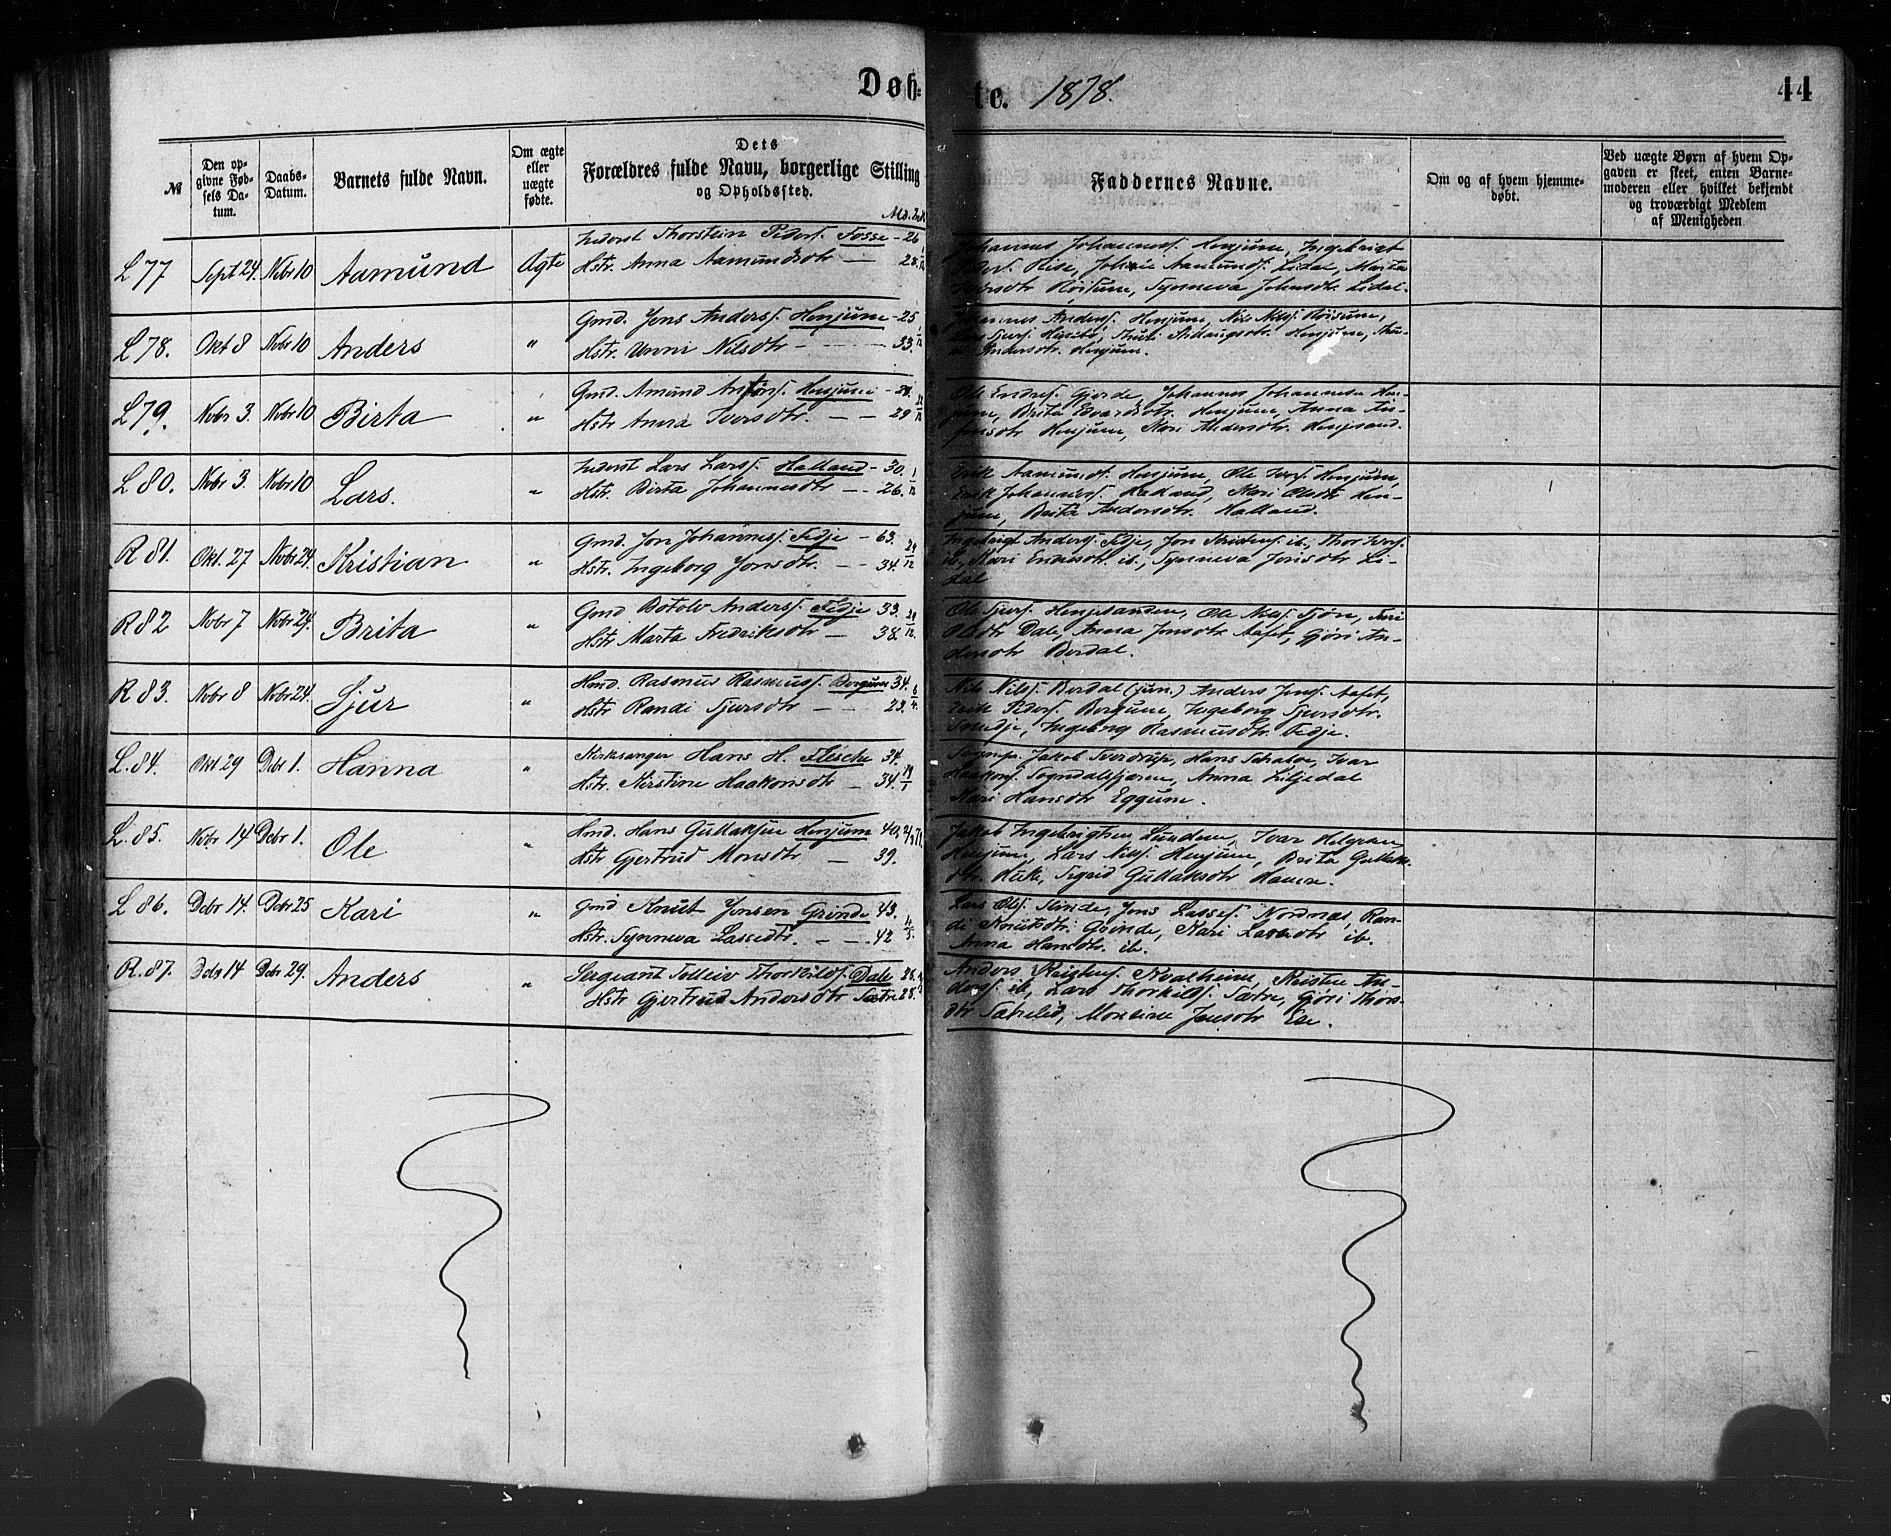 Døb-
te. 1878. 44
№
Den op-
givne Fød-
sels Da-
tum.
Daabs-
Datum.
Barnets fulde Navn.
Om ægte
eller
uægte
fødte.
Dets
Forældres fulde Navn, borgerlige Stilling
og Opholdssted.
Faddernes Navne.
Om og af hvem hjemme-
døbt.
Ved uægte Børn af hvem Op-
gaven er skeet, enten Barne-
moderen eller hvilket bekjendt
og troværdigt Medlem
af Menigheden
L 77 Sept 24. Nobr 10 Aamund Ægte
Inderst Thorstein Peders. Fosse - 26
Hstr. Anna Aamundsdtr — 28.
Johannes Johanness. Henjum, Ingebrigt
Aamunds. Lidal, Marta
Røisum, Synneva Johnsdtr. Lidal.
L 78. Okt 8 Nobr 10 Anders "
Gmd. Jens Anders. Henjum - 25
Hstr. Unni Nilsdtr - 33.
Johannes Anders. Henjum, Nils Nilss. Røisum,
Henjum, An-
Andersdtr. Henjum.
L 79. Nobr 3. Nobr 10 Birta "
Gmd. Amund Henjum
Hstr Anna Iversdtr. — 29
Ole Endres. Gjerde, Johannes Johannesen Hen-
jum, Brita Henjum, Anna An-
Henjum, Kari Andersdtr. Henjesand.
L 80. Nobr 3. Nobr 10 Lars. "
Inderst Lars Larss. Halland - 30. 1
Hstr. Birta Johannesdtr — 26. 12
Erik Aamunds. Henjum, Ole Ivers. Henjum,
Erik Johanness. Halland, Kari Olsdtr Hen-
jum, Brita Andersdtr. Halland.
R 81. Okt. 27 Nobr 24. Kristian "
Gmd. Jon Johanness. Fedje - 63.
Hstr. Ingeborg Jonsdtr. — 34.
Ingebrigt Anders. Fedje, Jon ib., Thor Ivers.
ib., Kari Endresdtr. ib., Synneva Jonsdtr Li-
dal
R 82 Nobr 7 Nobr 24. Brita "
Gmd Botolv Anders. Fedje 33.
Hstr Marta Fredriksdtr — 38.
Ole Sjurs. Henjesanden, Ole Nilss. Tjøn,
Olsdtr Dale, Anna Jonsdtr Aafet, Gjøri An-
dersdtr Berdal.
R 83. Nobr 8 Nobr 24. Sjur "
Hmd. Rasmus Rasmuss. Borgum 34. 6
Hstr Randi Sjursdtr — 23. 4.
Nils Nilss. Berdal (jun.) Anders Jens. Aafet,
Erik Peders. Borgum, Ingeborg Sjursdtr.
Ingeborg Rasmusdtr Fedje.
L. 84. Okt 29 Debr 1. Hanna "
Kirksanger Hans H. Flesche 34.
Hstr. Kirstine Haakonsdtr — 34. 14/1
Sognepr. Jakob Sverdrup, Hans Ivar
Haakons. Sogndalsfjæren, Anna Liljedal
Kari Hansdtr Eggum.
L. 85. Nobr 14 Debr 1. Ole "
Hmd. Hans Gullaksen Henjum 40.
Hstr Gjertrud Monsdtr — 39.
Jakob Ingebrigtsen Lunden, Ivar Helgesen
Henjum, Lars Nilss. Henjum, Brita Gullaks-
dtr. Huke, Sigrid Gullaksdtr Hamre.
L 86. Debr 14. Debr 25 Kari "
Gmd Knut Jensen Grinde 43.
Hstr. Synneva Lassedtr. — 42
Lars Ols. Slinde, Jens Lasses. Nordnæs, Ran-
di Knutsdtr. Grinde, Kari Lassedtr ib.
Anna Hansdtr. ib.
R. 87. Debr 14 Debr 29. Anders "
Sergeant Tolleiv Thorkilds. Dale 28.
Hstr Gjertrud Andersdtr Sætre 28.
Anders Kvalheim, Kristen An-
ders. ib, Lars Thorkilds. Sætre, Gjøri Thors-
dtr Jensdtr Ese.